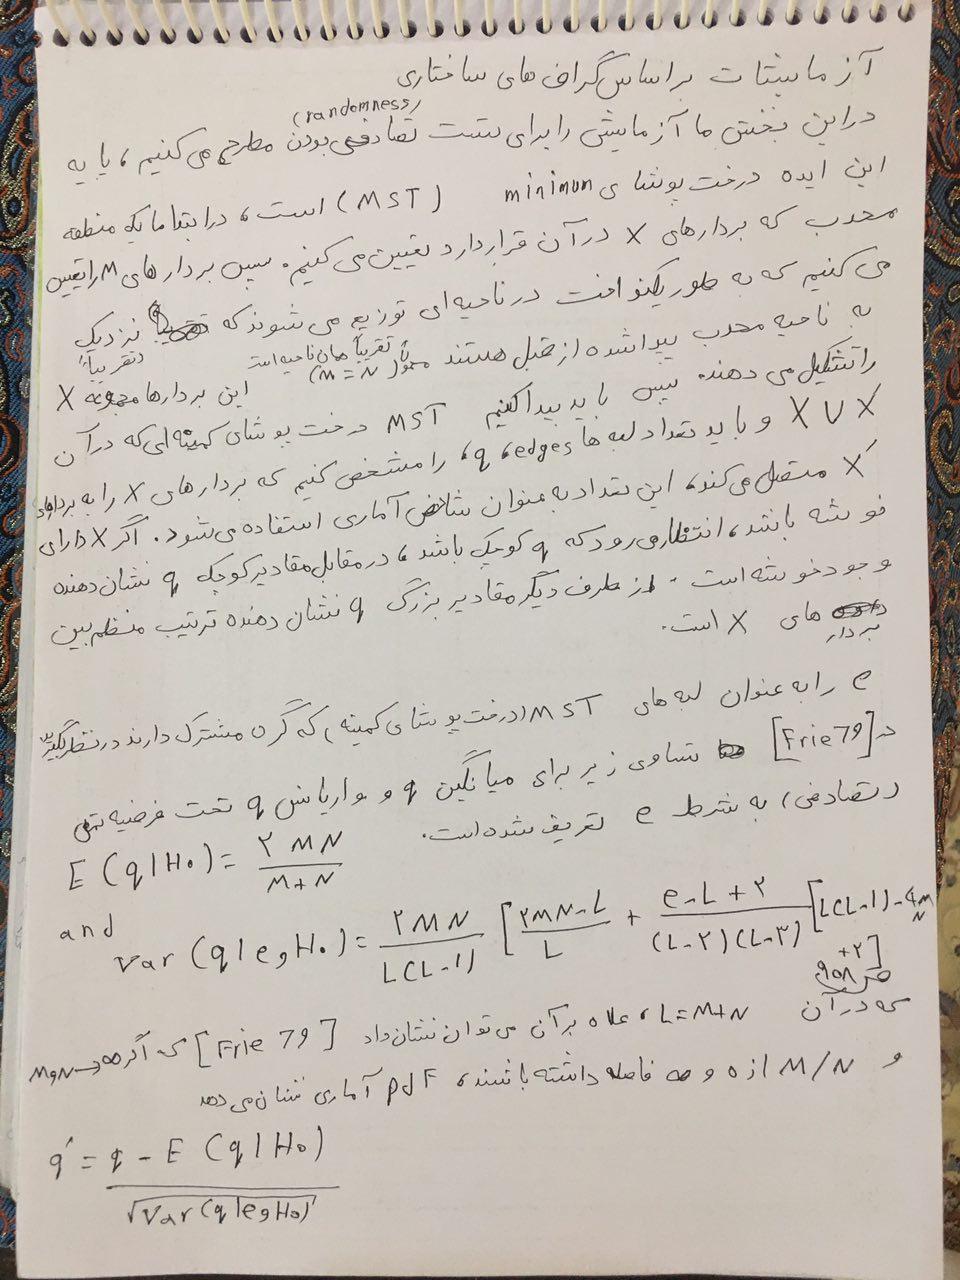 آزمایشات بر اساس گراف های ساختاری
(randomness)
در این بخش ما آزمایشی را برای تست تصادفی بودن مطرح می کنیم، پایه
این ایده درخت پوشای minimum (MST) است، در ابتدا ما یک منطقه
محدب که بردارهای X در آن قرار دارد تعیین می کنیم. سپس بردارهای M را تعیین
می کنیم که به طور یکنواخت در ناحیه ای توزیع می شوند که نزدیک
تقریباً
به ناحیه محدب پیدا شده از قبل هستند (M = N) این بردارها مجموعه X'
تقریباً همان ناحیه است
را تشکیل می دهند. سپس باید پیدا کنیم MST درخت پوشای کمینه ای که در آن
X U X' و باید تعداد لبه ها edges، q، را مشخص کنیم که بردارهای X را به بردارهای
X' متصل می کند، این تعداد به عنوان شاخص آماری استفاده می شود. اگر X دارای
خوشه باشد، انتظار می رود که q کوچک باشد، در مقابل مقادیر کوچک q نشان دهنده
وجود خوشه است. از طرف دیگر مقادیر بزرگ q نشان دهنده ترتیب منظم بین
بردار های X است.
e را به عنوان لبه های MST (درخت پوشای کمینه) که گره مشترک دارند در نظر بگیرید
در [Frie 79] تساوی زیر برای میانگین q و واریانس q تحت فرضیه تهی
(تصادفی) به شرط e تعریف شده است.
E (q|H₀) = ۲MN / M+N
and
Var (q|e,H₀) = ۲MN / L(L-1) [ ۲MN-L / L + e-L+۲ / (L-۲)(L-۳) [L(L-1)-۴MN
+۲]]
که در آن L=M+N، علاوه بر آن می توان نشان داد [Frie 79] که اگر M,N→∞
و M/N از ۰ و ∞ فاصله داشته باشند، pdf آماری نشان می دهد
q' = q - E (q|H₀) / √Var(q|e,H₀)